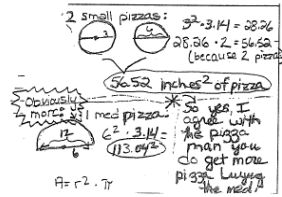 2 small pizzas:
3
6
3² · 3.14 = 28.26
28.26 · 2 = 56.52
(because 2 pizzas
56.52 inches² of pizza
Obviously
more
1 med pizza
12
6
6² · 3.14 =
113.04²
A = r² · π
So yes I
agree with
the pizza
man you
do get more
pizza
the med!